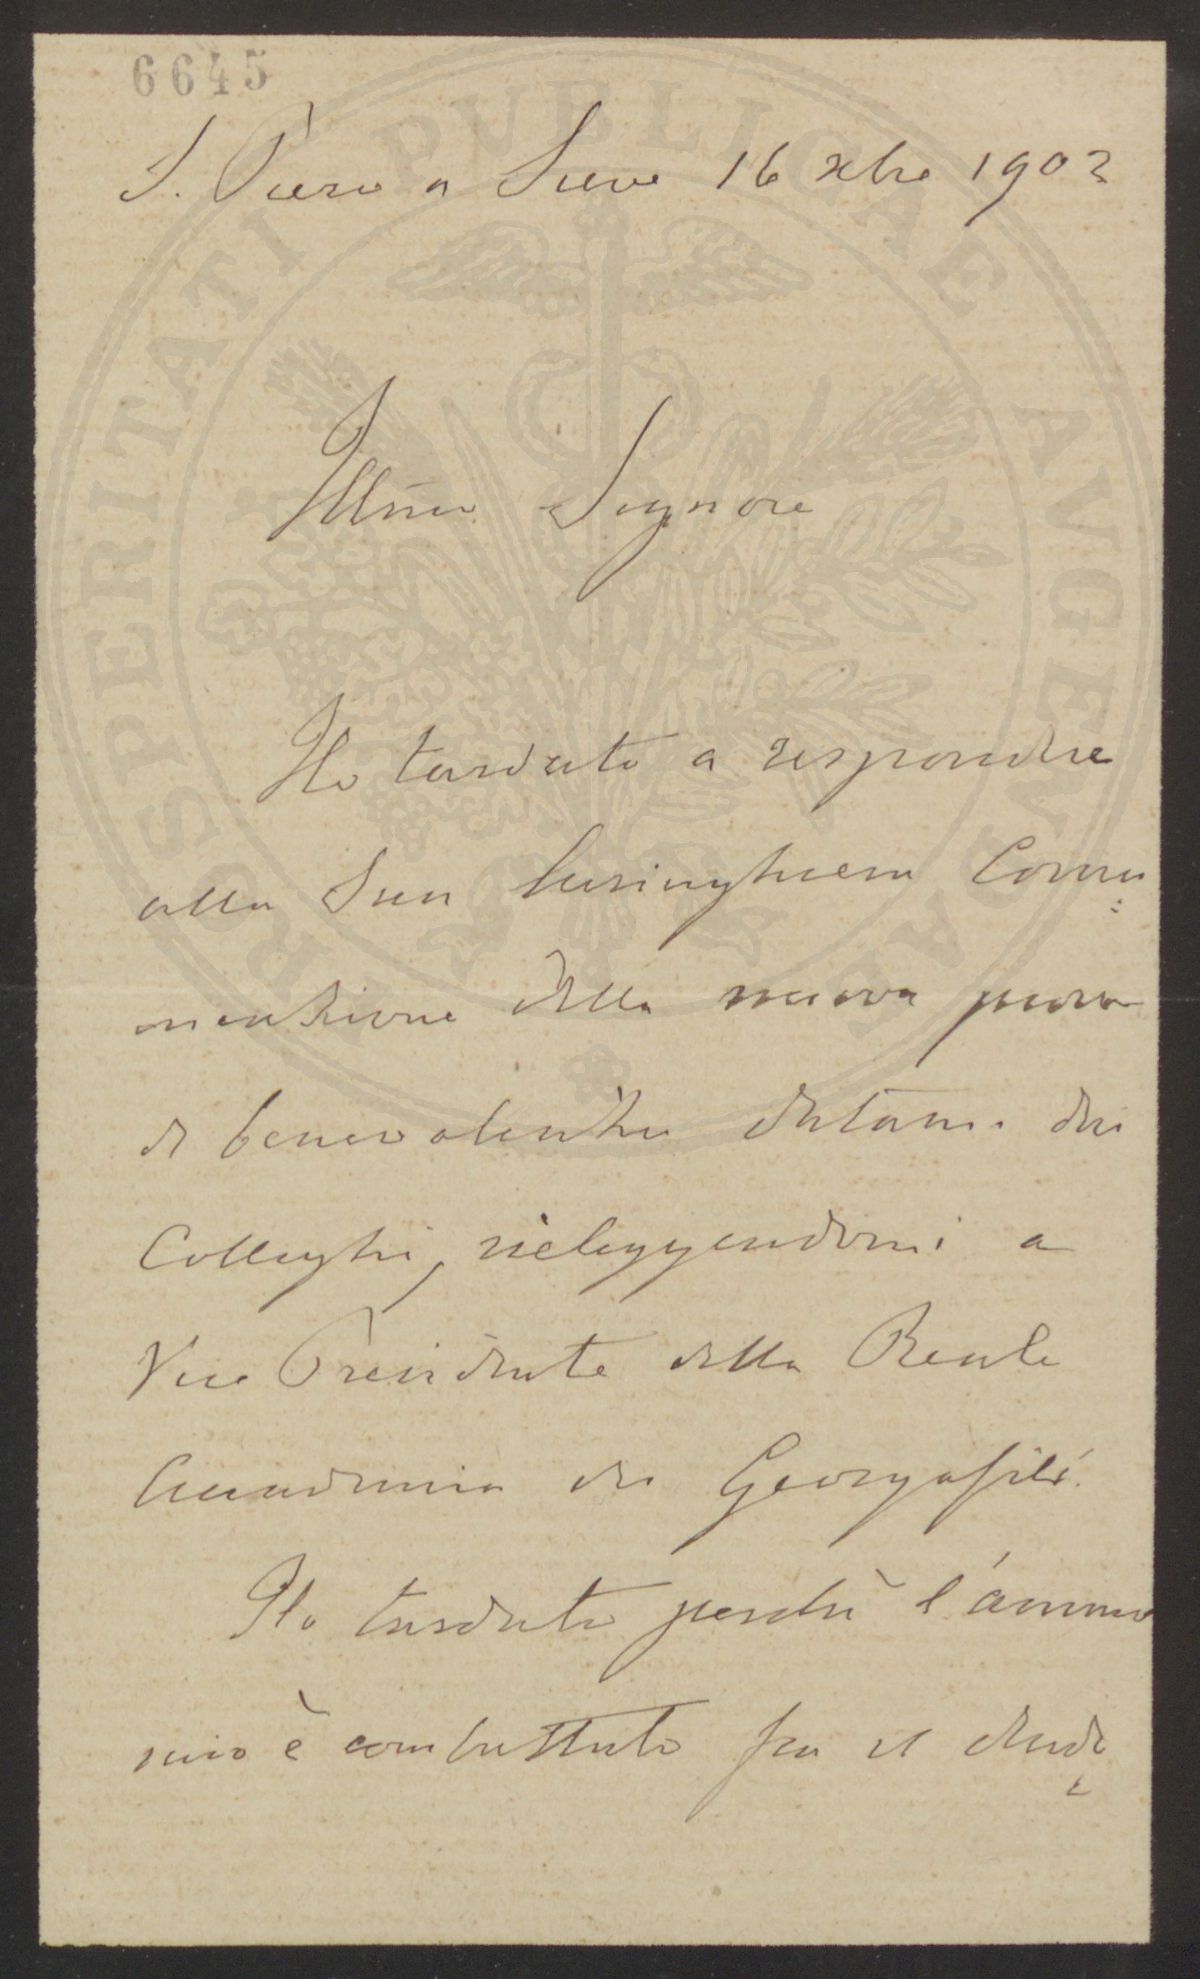 6645
PROSPERITATI PUBLICAE AUGENDAE
S. Piero a Sieve 16 xbre 1902
Illmo Signore
Ho tardato a rispondere
alla Sua lusinghiera Comu
nicazione della nuova prova
di benevolenza datami dai
Colleghi, rieleggendomi a
Vice Presidente della Reale
Accademia dei Georgofili.
Ho tardato perchè l'animo
mio è combattuto fra il